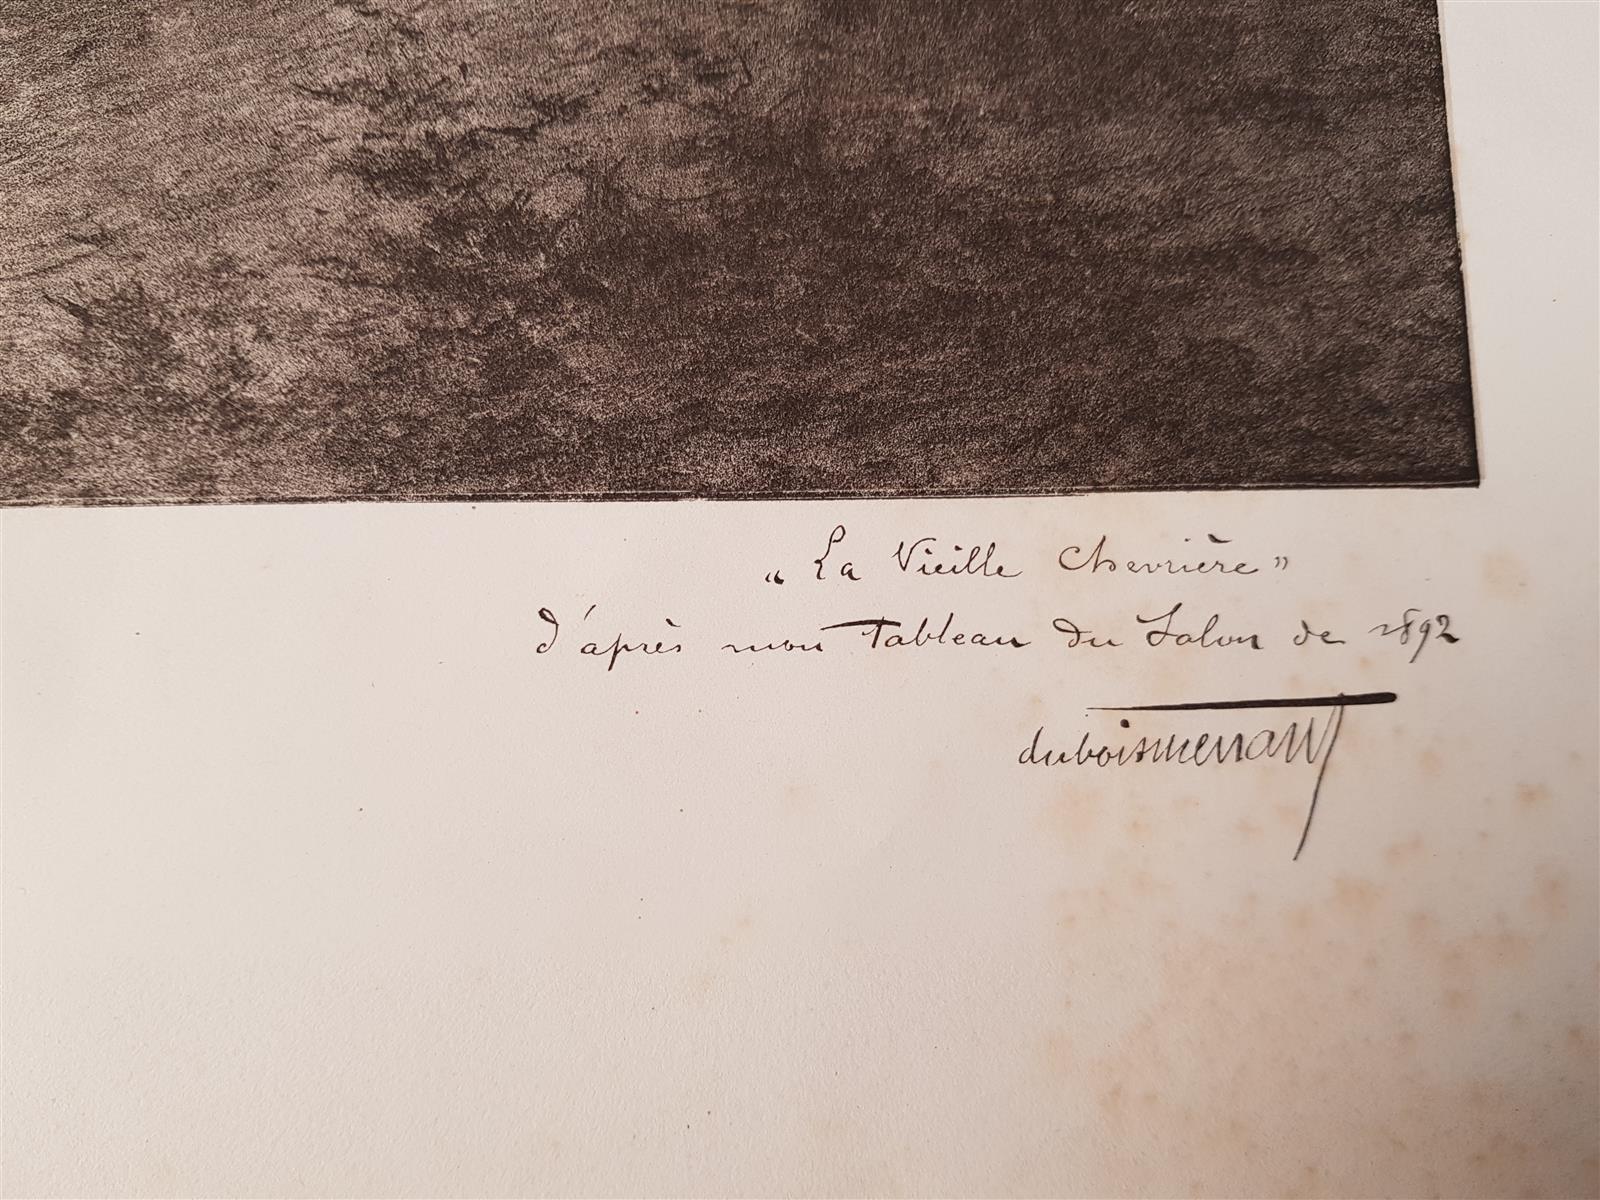 „ La Vieille Chevrière ”
d'après mon Tableau du Salon de 1892
duboismenant